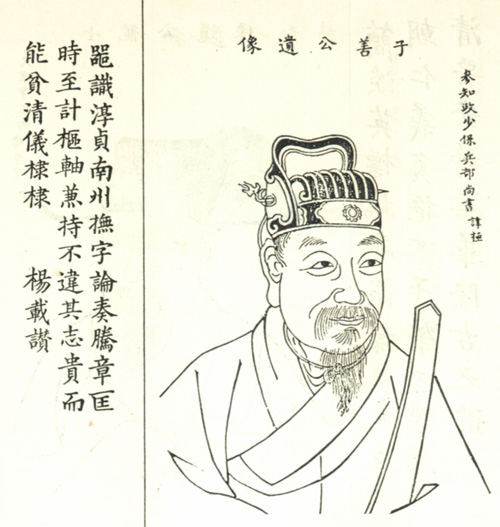 参知政少保兵部尚書諱極
子善公遺像
噐識淳貞南州撫字論奏騰章匡
時至計樞軸兼持不違其志貴而
能貧清儀棣棣 楊載讚